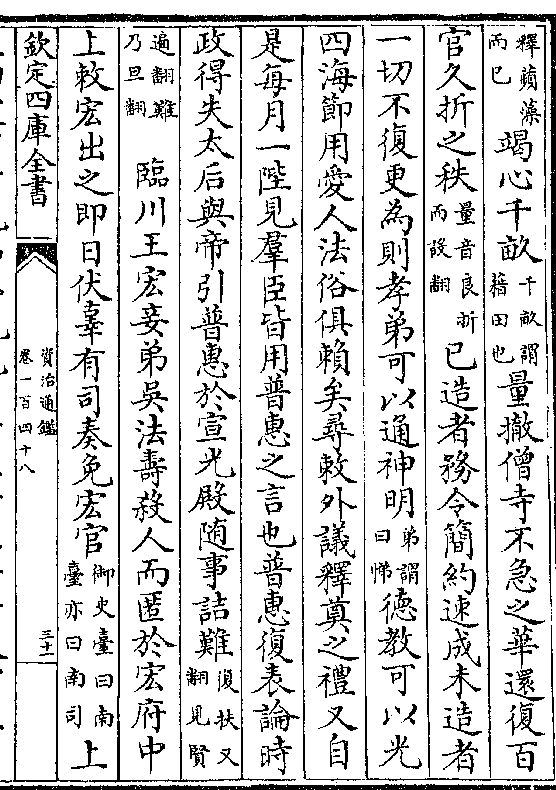 釋蘋藻而已竭心千畝千畝謂藉田也量撤僧寺不急之華還復百
官久折之秩量音良折而設翻已造者務令簡約速成未造者
一切不復更為則孝弟可以通神明弟謂曰悌德教可以光
四海節用愛人法俗俱賴矣尋敕外議釋奠之禮又自
是每月一陛見羣臣皆用普惠之言也普惠復表論時
政得失太后與帝引普惠於宣光殿随事詰難復扶又翻見賢
遍翻難乃旦翻臨川王宏妾弟吳法壽殺人而匿於宏府中
上敕宏出之即日伏辜有司奏免宏官御史臺曰南臺亦曰南司上
欽定四庫全書
資治通鑑
卷一百四十八
三十一